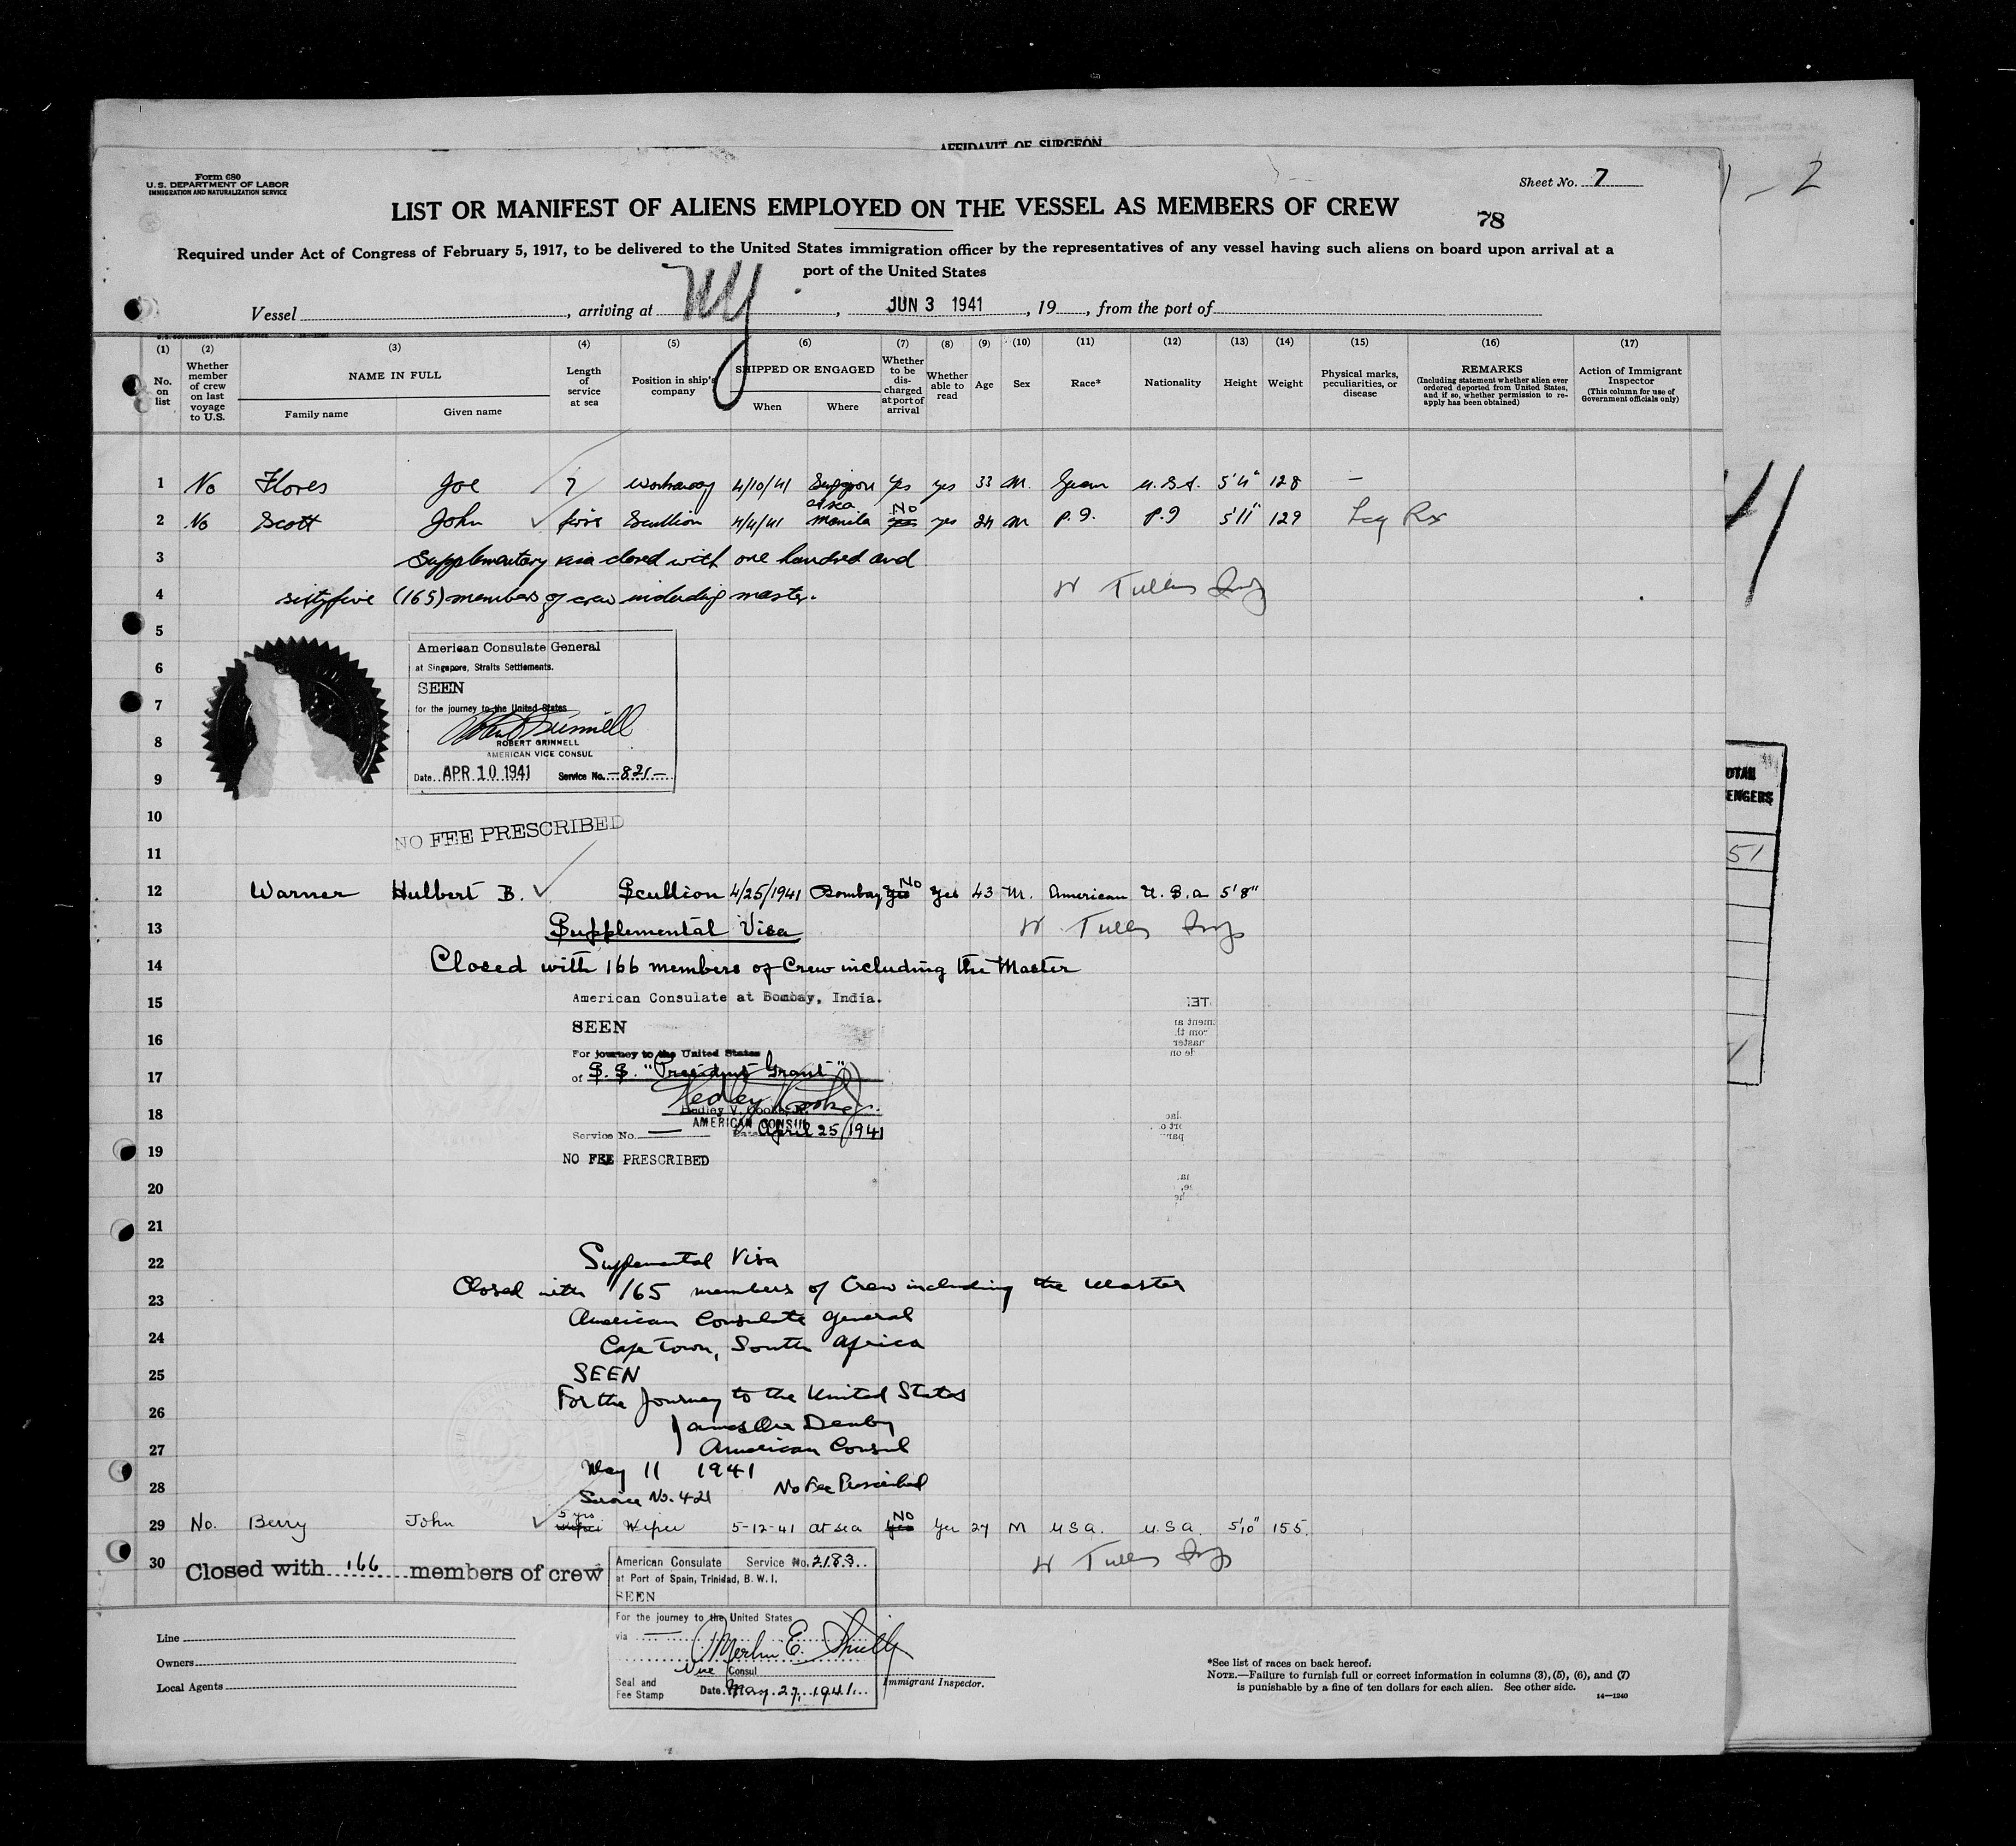 AFFIDAVIT OF SURGEON
Form 680
U. S. DEPARTMENT OF LABOR
IMMIGRATION AND NATURALIZATION SERVICE
Sheet No. 7
LIST OR MANIFEST OF ALIENS EMPLOYED ON THE VESSEL AS MEMBERS OF CREW
78
Required under Act of Congress of February 5, 1917, to be delivered to the United States immigration officer by the representatives of any vessel having such aliens on board upon arrival at a
port of the United States
Vessel , arriving at NY , JUN 3 1941 , 19 , from the port of
(1) (2) (3) (4) (5) (6) (7) (8) (9) (10) (11) (12) (13) (14) (15) (16) (17)
No. on list
Whether member of crew on last voyage to U.S.
NAME IN FULL
Family name Given name
Length of service at sea
Position in ship's company
SHIPPED OR ENGAGED
When Where
Whether to be discharged at port of arrival
Whether able to read
Age
Sex
Race*
Nationality
Height
Weight
Physical marks, peculiarities, or disease
REMARKS
(Including statement whether alien ever ordered deported from United States, and if so, whether permission to reapply has been obtained)
Action of Immigrant Inspector
(This column for use of Government officials only)
1 No Flores Joe 7 Workaway 4/10/41 yes yes 33 M. Guam U.S.A. 5'4" 128 —
at sea No
2 No Scott John five Scullion 4/4/41 Manila yes yes M P.I. P.I 5'11" 129 Leg Rx
3 Supplementary visa closed with one hundred and
4 sixty five (165) members of crew including master. W Tulley Insp
5
6
7
8
9
10
11
American Consulate General
at Singapore, Straits Settlements.
SEEN
for the journey to the United States
Robert Grinnell
ROBERT GRINNELL
AMERICAN VICE CONSUL
Date APR 10 1941 Service No. -821-
NO FEE PRESCRIBED
No
12 Warner Hulbert B. Scullion 4/25/1941 Bombay yes yes 43 M. American U.S.A 5'8"
13 Supplemental Visa W Tulley Insp
14 Closed with 166 members of Crew including the Master
15 American Consulate at Bombay, India.
16 SEEN
For journey to the United States
17 of S.S. "President Grant"
18 Hedley V. Cooke, Jr.
AMERICAN CONSUL
Service No. — Date April 25, 1941
19 NO FEE PRESCRIBED
20
21
22 Supplemental Visa
23 Closed with 165 members of Crew including the Master
24 American Consulate General
Cape Town, South Africa
25 SEEN
26 For the Journey to the United States
James Orr Denby
27 American Consul
28 May 11 1941 No Fee Prescribed
Service No. 421
5 yrs No
29 No. Berry John Wiper 5-12-41 at sea yes yes 27 M USA. U.S.A. 5'10" 155.
30 Closed with 166 members of crew W Tulley Insp
American Consulate Service No. 2183
at Port of Spain, Trinidad, B. W. I.
SEEN
For the journey to the United States
via
Merlin E. Smith
Vice Consul
Seal and Fee Stamp Date May 27, 1941
Line
Owners
Local Agents
Immigrant Inspector.
*See list of races on back hereof.
NOTE.—Failure to furnish full or correct information in columns (3), (5), (6), and (7)
is punishable by a fine of ten dollars for each alien. See other side.
14—1240
51